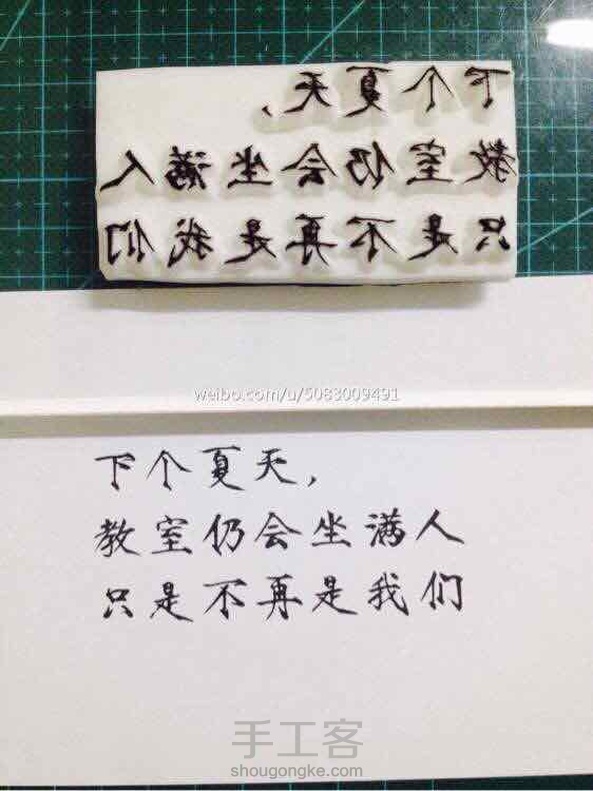 下个夏天，
教室仍会坐满人
只是不再是我们
weibo.com/u/5083009491
下个夏天，
教室仍会坐满人
只是不再是我们
手工客
shougongke.com